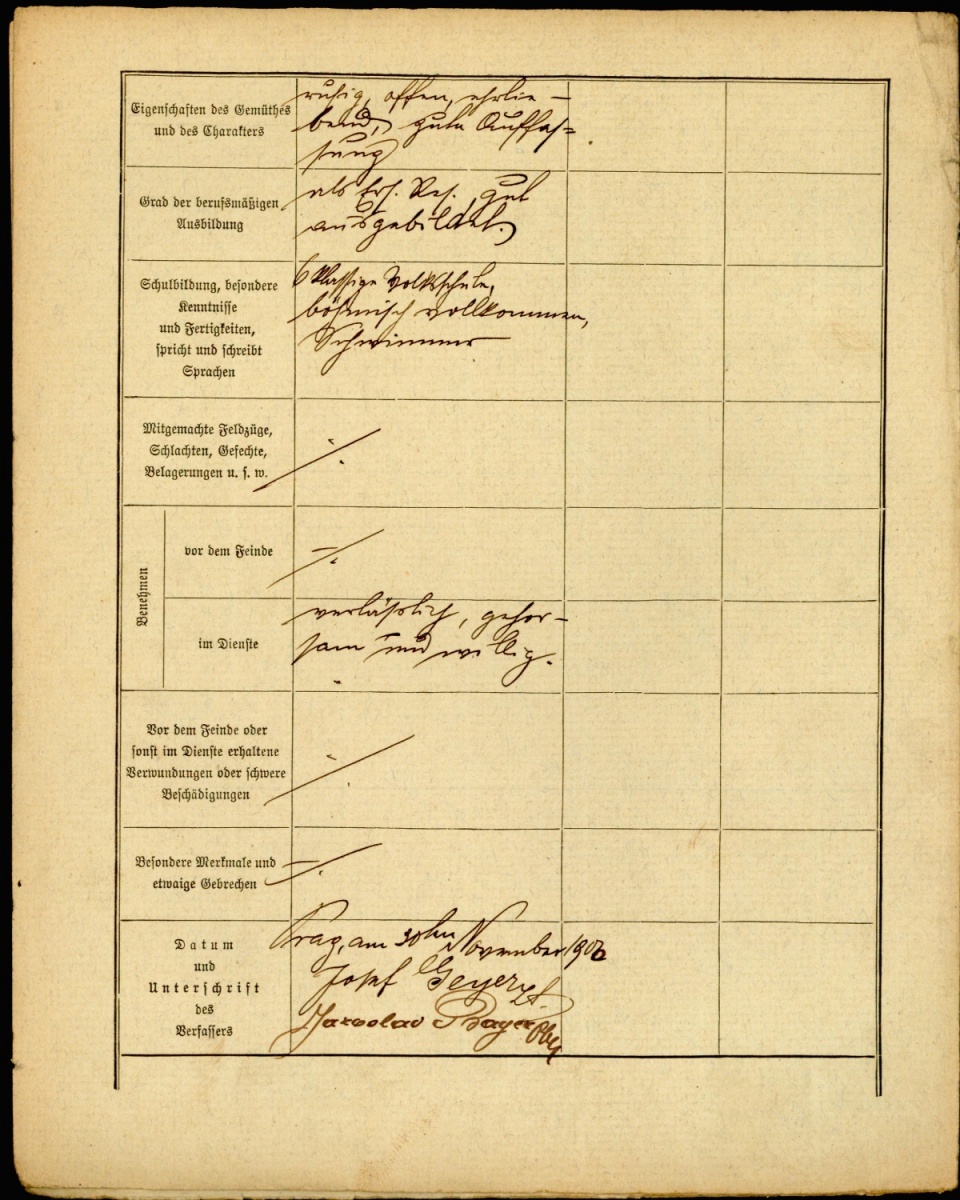 Eigenschaften des Gemüthes
und des Charakters
ruhig, offen, ehrlie-
bend, gute Auffas=
sung
Grad der berufsmäßigen
Ausbildung
als Ers. Res. gut
ausgebildet.
Schulbildung, besondere
Kenntnisse
und Fertigkeiten,
spricht und schreibt
Sprachen
6 klassige Volksschule,
böhmisch vollkommen,
Schwimmer
Mitgemachte Feldzüge,
Schlachten, Gefechte,
Belagerungen u. s. w.
./.
Benehmen
vor dem Feinde
./.
im Dienste
verläßlich, gehor-
sam und willig.
Vor dem Feinde oder
sonst im Dienste erhaltene
Verwundungen oder schwere
Beschädigungen
./.
Besondere Merkmale und
etwaige Gebrechen
./.
Datum
und
Unterschrift
des
Verfassers
Prag, am 30ten November 1906
Josef Geyer
Jaroslav Bayer